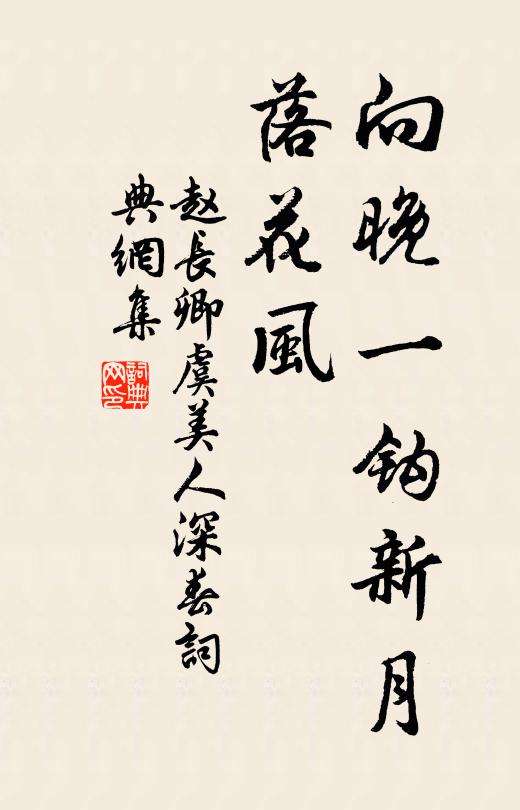 向晚一鈎新月
落花風
赵長卿虞美人深春詞
典網集
詞典网印